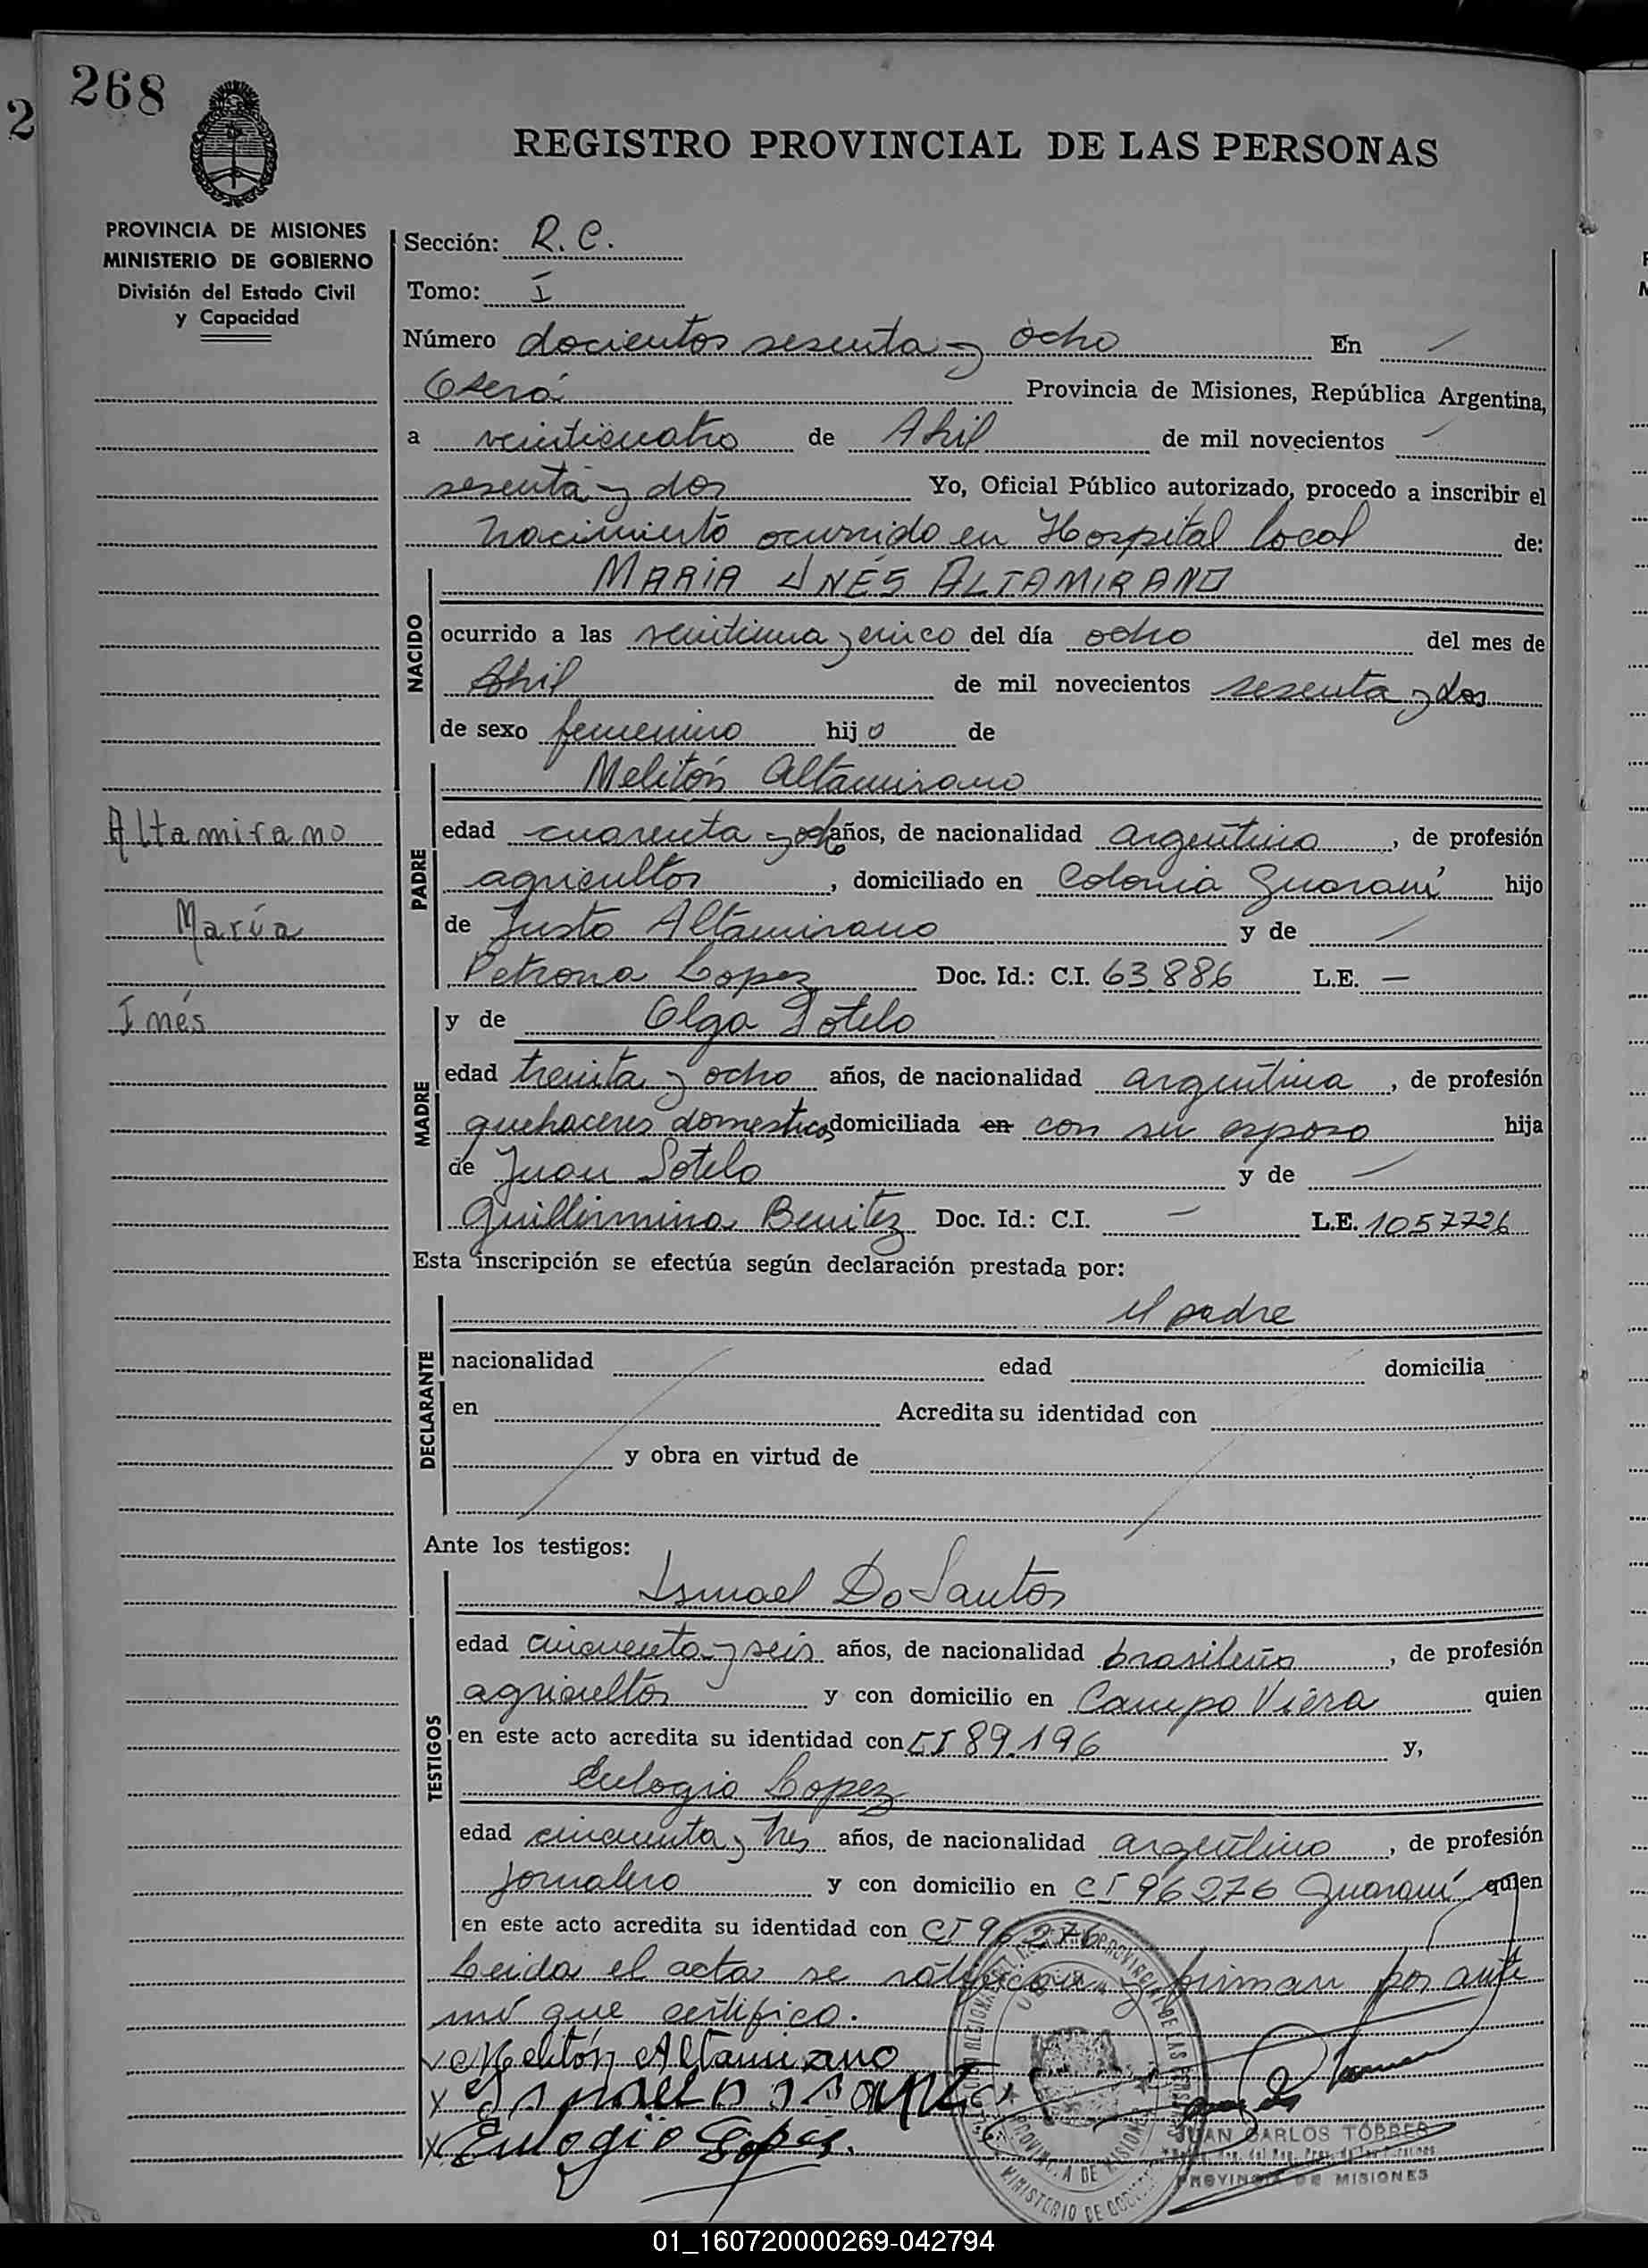 268
2
REGISTRO PROVINCIAL DE LAS PERSONAS
PROVINCIA DE MISIONES
MINISTERIO DE GOBIERNO
División del Estado Civil
y Capacidad
Sección: R. C.
Tomo: I
Número docientos sesenta y ocho En
Oberá Provincia de Misiones, República Argentina,
a veinticuatro de Abril de mil novecientos
sesenta y dos Yo, Oficial Público autorizado, procedo a inscribir el
nacimiento ocurrido en Hospital local de:
MARIA INÉS ALTAMIRANO
NACIDO
ocurrido a las veintiuna y cinco del día ocho del mes de
Abril de mil novecientos sesenta y dos
de sexo femenino hijo de
Melitón Altamirano
Altamirano
María
Inés
PADRE
edad cuarenta y ocho años, de nacionalidad argentino, de profesión
agricultor, domiciliado en Colonia Guaraní hijo
de Justo Altamirano y de
Petrona Lopez Doc. Id.: C.I. 63.886 L.E. —
y de Olga Sotelo
MADRE
edad treinta y ocho años, de nacionalidad argentina, de profesión
quehaceres domesticos domiciliada en con su esposo hija
de Juan Sotelo y de
Guillermina Benitez Doc. Id.: C.I. — L.E. 1057726
Esta inscripción se efectúa según declaración prestada por:
el padre
DECLARANTE
nacionalidad edad domicilia
en Acredita su identidad con
y obra en virtud de
Ante los testigos:
Ismael Do Santos
TESTIGOS
edad cincuenta y seis años, de nacionalidad brasileña, de profesión
agricultor y con domicilio en Campo Viera quien
en este acto acredita su identidad con CI 89.196 y,
Eulogio Lopez
edad cincuenta y tres años, de nacionalidad argentino, de profesión
jornalero y con domicilio en CI 96276 Guaraní quien
en este acto acredita su identidad con CI 96.276
Leida el acta se ratifican y firman por ante
mí que certifico.
Melitón Altamirano
Eulogio Lopez.
JUAN CARLOS TORRES
PROVINCIA DE MISIONES
PROVINCIA DE MISIONES
01_160720000269-042794